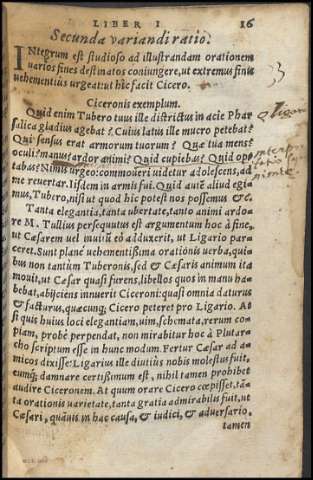 LIBER I. 16
Secunda variandi ratio.
INtegrum est studioso ad illustrandam orationem
varios fines destinatos coniungere, ut extremus finis
vehementius urgeat: ut hîc facit Cicero.
Ciceronis exemplum.
Quid enim Tubero tuus ille districtus in acie Phar
salica gladius agebat? Cuius latus ille mucro petebat?
Qui sensus erat armorum tuorum? Quæ tua mens?
oculi? manus? ardor animi? Quid cupiebas? Quid op
tabas? Nimis urgeo: commoueri uidetur adolescens, ad
me reuertar. Iisdem in armis fui. Quid autē aliud egi
mus, Tubero, nisi ut quod hic potest nos possemus &c.
Tanta elegantia, tanta ubertate, tanto animi ardo
re M. Tullius persequutus est argumentum hoc à fine,
ut Cæsarem uel inuitū eò adduxerit, ut Ligario par
ceret. Sunt planè uehementißima orationis uerba, qui
bus non tantùm Tuberonis, sed & Cæsaris animum ita
mouit, ut Cæsar quasi furens, libellos quos in manu ha
bebat, abijciens innuerit Ciceroni: quasi omnia daturus
& facturus, quæcunq; Cicero peteret pro Ligario. At
si quis huius loci elegantiam, uim, schemata, rerum co
piam, probè perpendat, non mirabitur hoc à Plutar
cho scriptum esse in hunc modum. Fertur Cæsar ad a-
micos dixisse: Ligarius ille diutius nobis molestus fuit,
eumq; damnare certißimum est, nihil tamen prohibet
audire Ciceronem. At quum orare Cicero cœpisset, tan
ta orationis uarietate, tanta gratia admirabilis fuit, ut
Cæsari, quāuis in hac causa, & iudici, & aduersario,
tamen